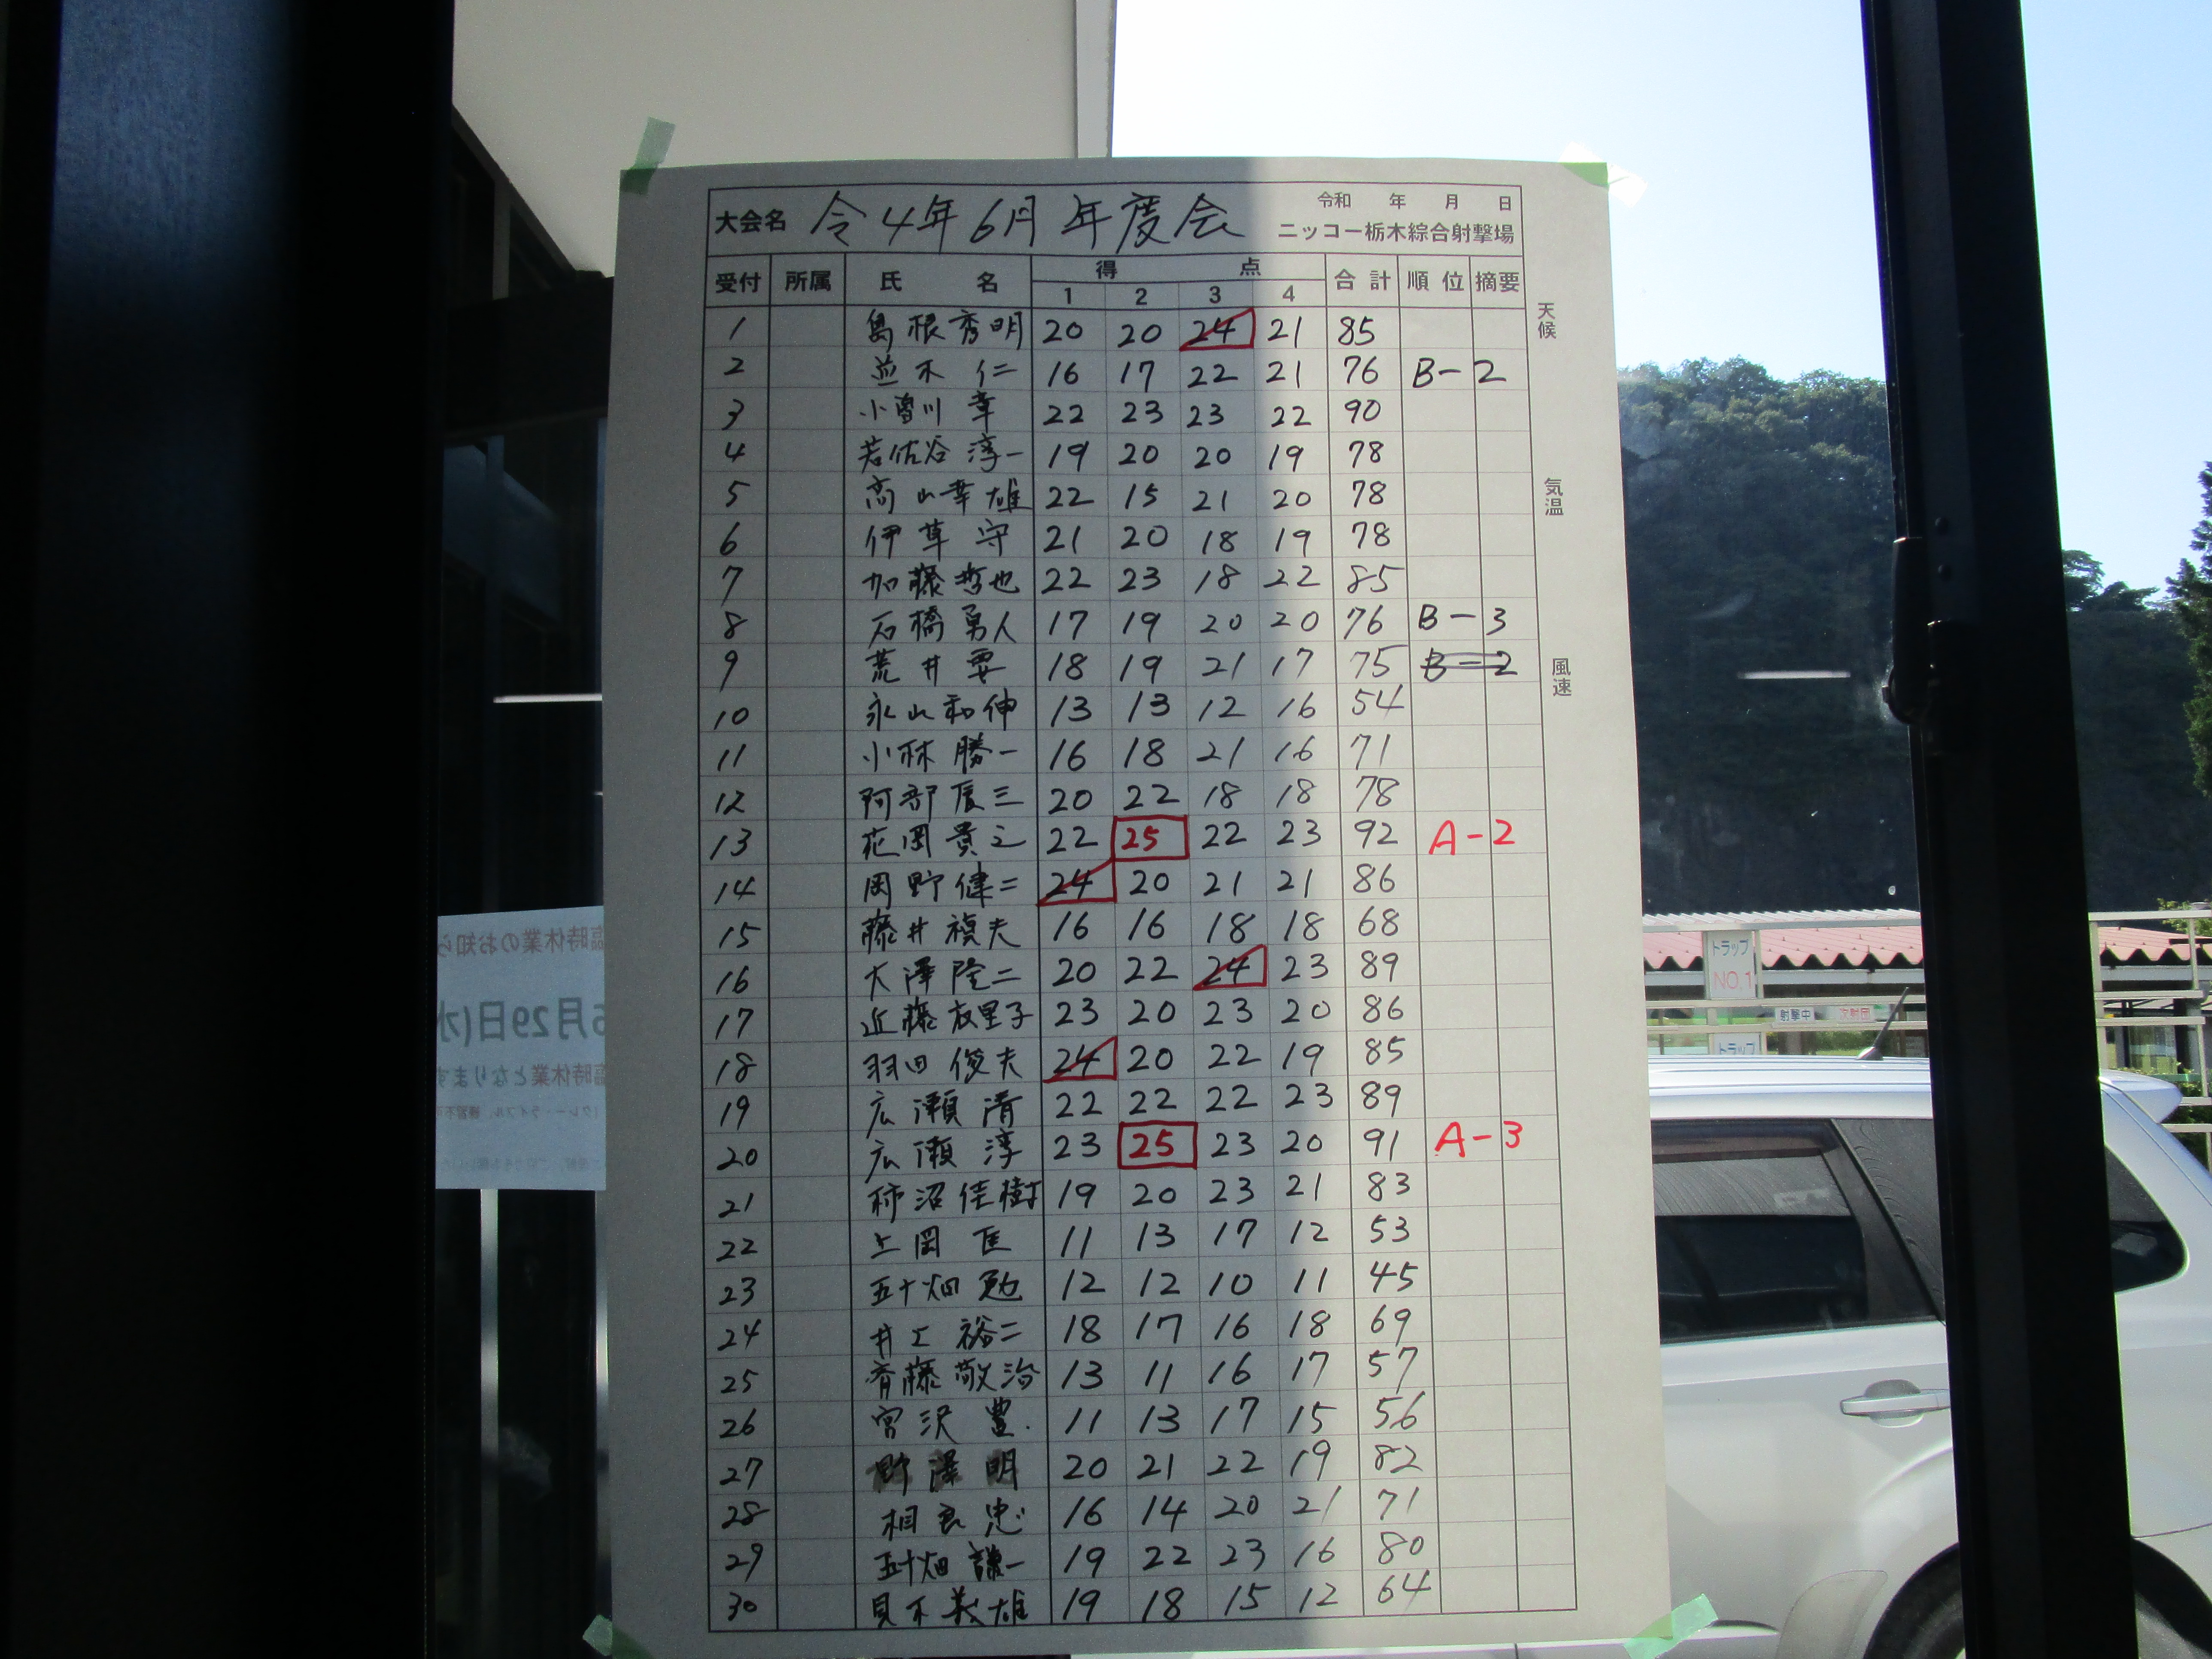 大会名 令4年6月年度会 令和 年 月 日
ニッコー栃木綜合射撃場
受付 所属 氏名 得点 合計 順位 摘要
1 2 3 4
1 島根秀明 20 20 24 21 85
2 並木 仁 16 17 22 21 76 B-2
3 小曽川 幸 22 23 23 22 90
4 若佐谷 淳一 19 20 20 19 78
5 高山幸雄 22 15 21 20 78
6 伊草 守 21 20 18 19 78
7 加藤哲也 22 23 18 22 85
8 石橋勇人 17 19 20 20 76 B-3
9 荒井要 18 19 21 17 75 B-2
10 永山和伸 13 13 12 16 54
11 小林勝一 16 18 21 16 71
12 阿部辰三 20 22 18 18 78
13 花岡貴之 22 25 22 23 92 A-2
14 岡野健二 24 20 21 21 86
15 藤井禎夫 16 16 18 18 68
16 大澤隆二 20 22 24 23 89
17 近藤友里子 23 20 23 20 86
18 羽田俊夫 24 20 22 19 85
19 広瀬清 22 22 22 23 89
20 広瀬淳 23 25 23 20 91 A-3
21 柿沼佳樹 19 20 23 21 83
22 上岡 匡 11 13 17 12 53
23 五十畑 勉 12 12 10 11 45
24 井上裕二 18 17 16 18 69
25 斉藤敬治 13 11 16 17 57
26 宮沢 豊 11 13 17 15 56
27 野澤明 20 21 22 19 82
28 相良忠 16 14 20 21 71
29 五十畑謙一 19 22 23 16 80
30 義雄 19 18 15 12 64
天候
気温
風速
臨時休業のお知ら
6月29日(水
臨時休業となります
トラップ
NO.1
射撃中
次射団
トラップ